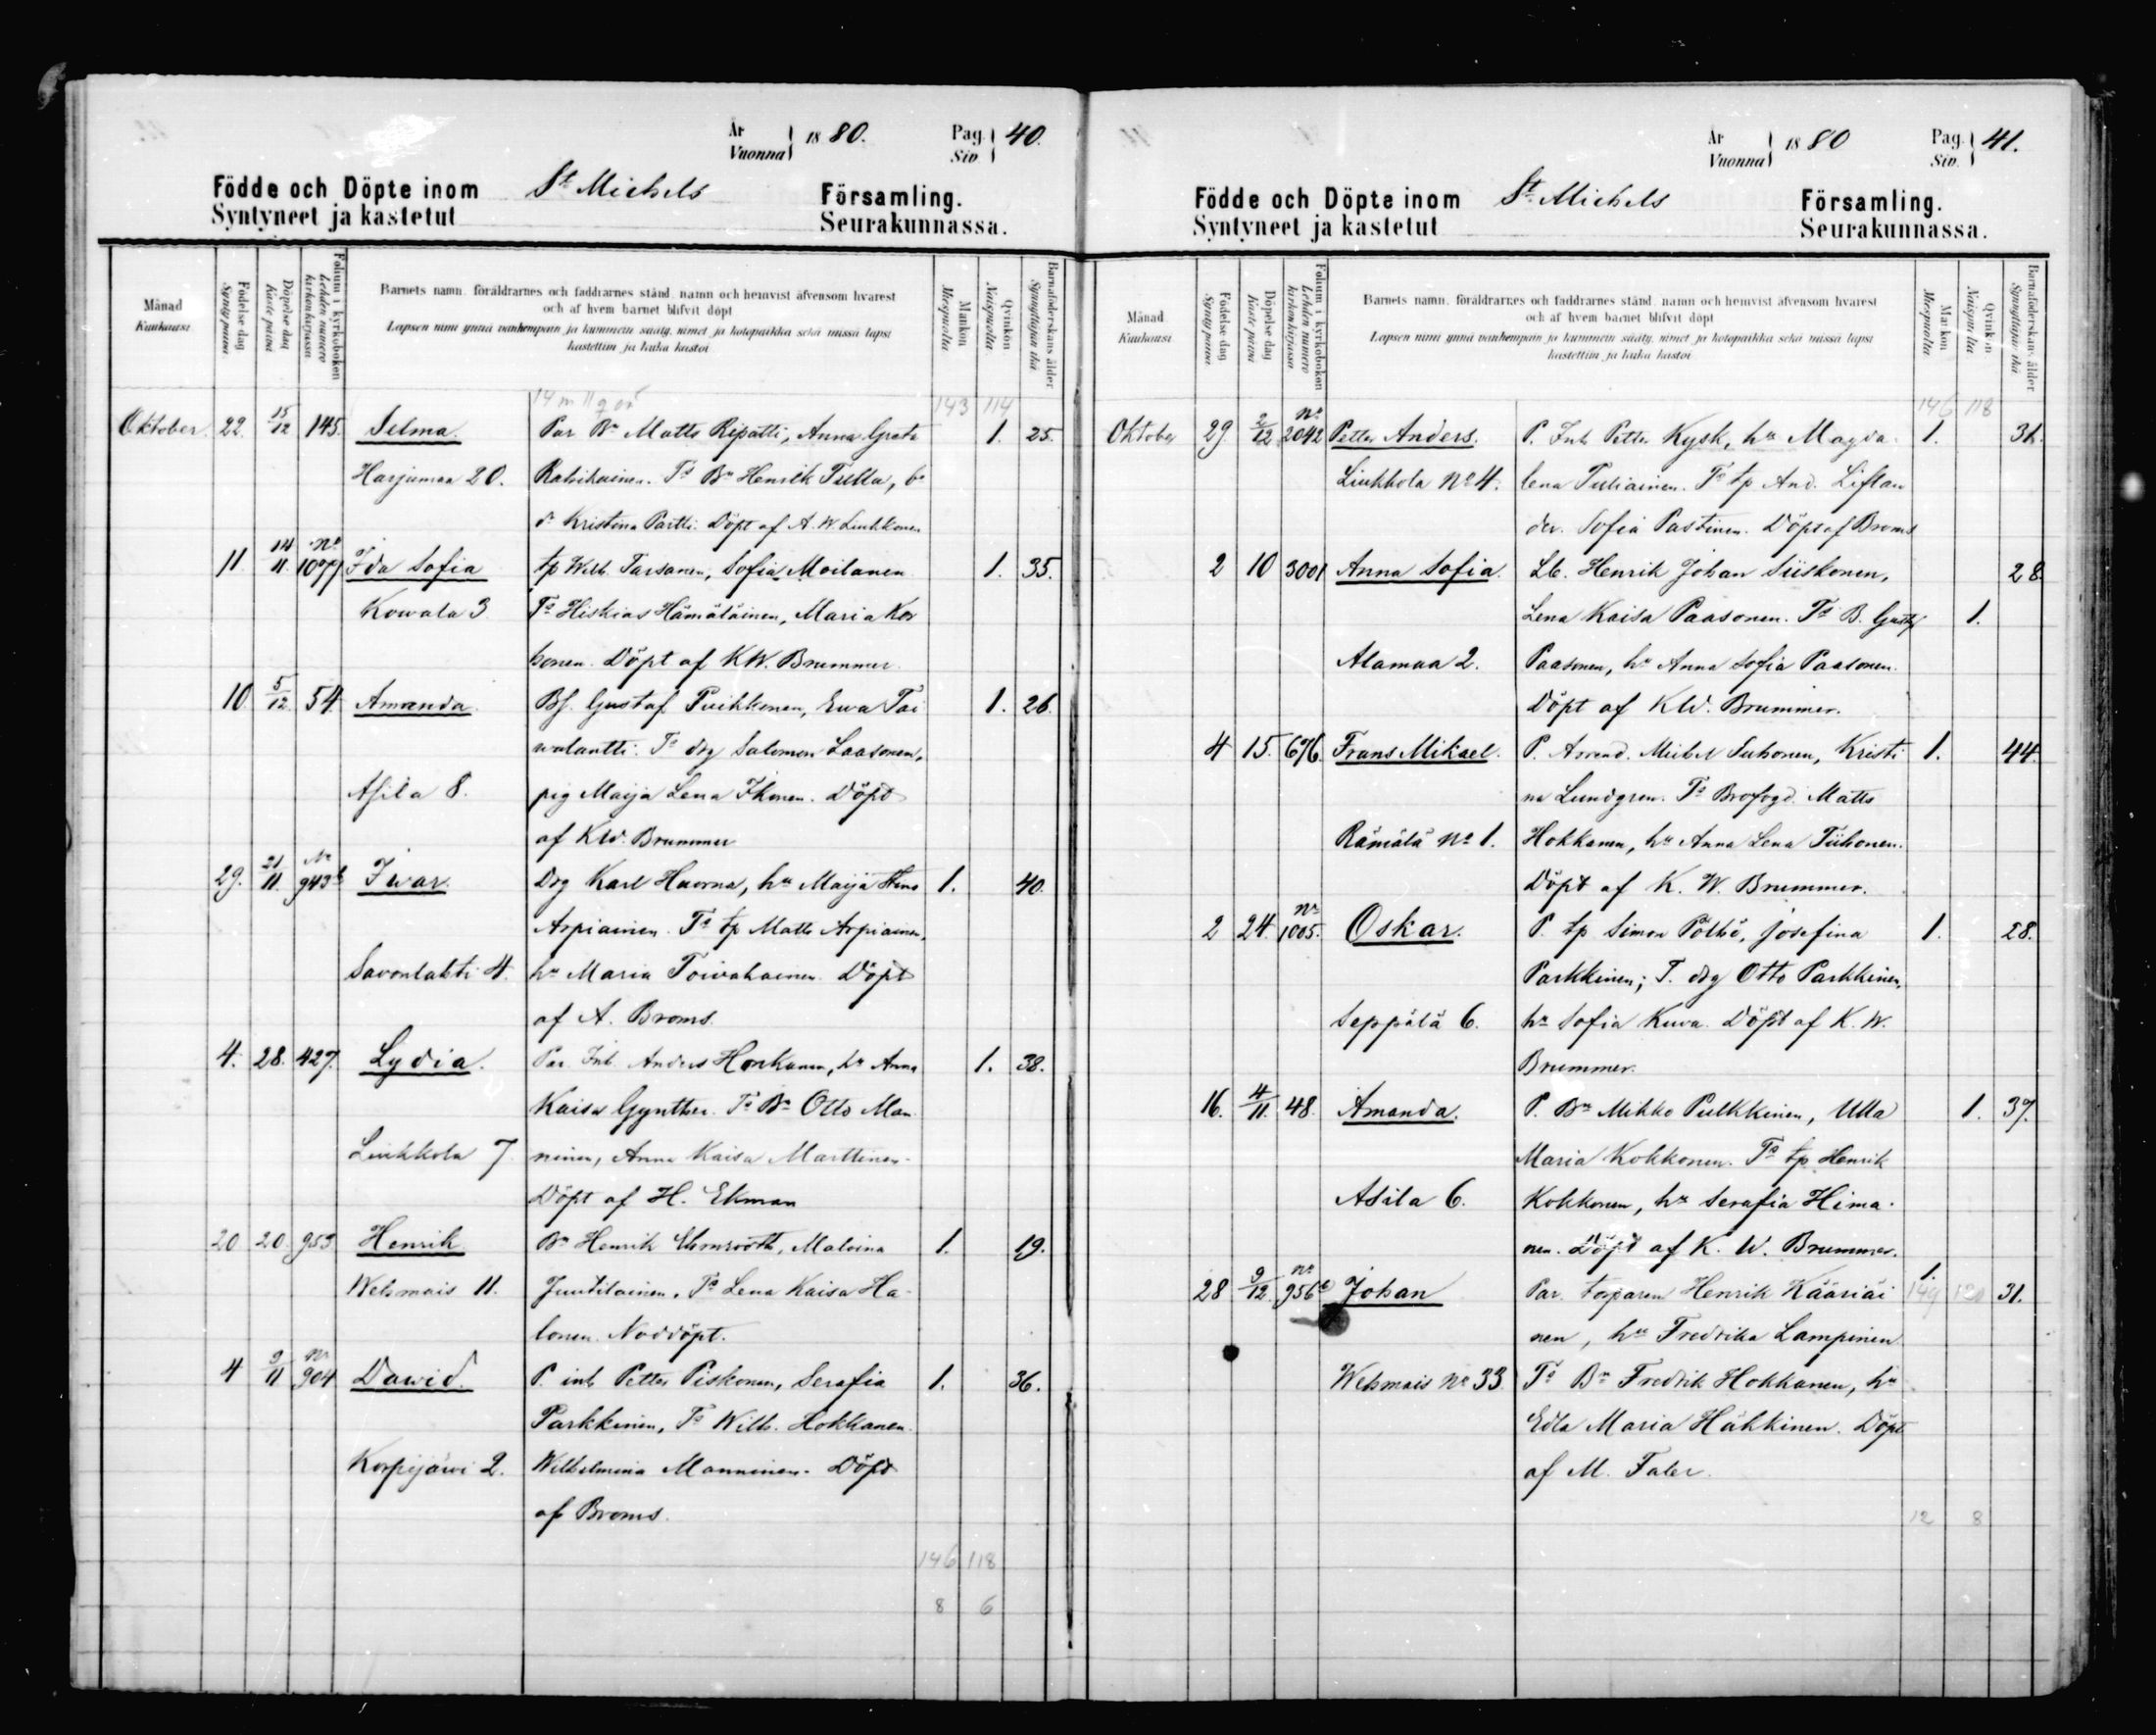 År
Vuonna 1880.
Pag.
Siv. 40.
Födde och Döpte inom St Michels Församling.
Syntyneet ja kastetut Seurakunnassa.
Månad
Kuukausi
Födelse dag
Synty päivä
Döpelse dag
Kaste päivä
Folium i kyrkoboken
Lehden numero kirkonkirjassa
Barnets namn, föräldrarnes och faddrarnes stånd, namn och hemvist äfvensom hvarest
och af hvem barnet blifvit döpt
Lapsen nimi ynnä vanhempain ja kummein sääty, nimet ja kotopaikka sekä missä lapsi
kastettiin ja kuka kastoi
Mankön
Miespuolta
Qvinkön
Naispuolta
Barnaföderskans ålder
Synnyttäjän ikä
143 114
Oktober. 22. 15/12 145. Selma. Par Bn Matts Ripatti, Anna Greta 1. 25.
Harjumaa 20. Ratvikainen. Ts Bn Henrik Pulla, b
dr Kristina Partti. Döpt af A. W. Liukkonen
11. 14/11. No 1077 Ida Sofia tp Wilh. Tarsanen, Sofia Moilanen 1. 35.
Kowala 3 Ts Hiskias Hämäläinen, Maria Kor
honen. Döpt af KW. Brummer.
10 5/12. 54. Amanda. Bf. Gustaf Puikkonen, Ewa Tai 1. 26.
walantti. Ts drg Salomon Laasonen,
Asila 8. pig Maija Lena Ikonen. Döpt
af KW. Brummer
29. 21/11. No 943b Iwar. Drg Karl Huorna, hu Maija Stina 1. 40.
Arpiainen. Ts tp Matts Arpiainen,
Savonlahti 4. hu Maria Toivakainen. Döpt
af A. Broms.
4. 28. 427. Lydia. Par. Inh. Anders Honkanen, hu Anna 1. 38.
Kaisa Gynther. Ts Bn Otto Man
Liukkola 7 ninen, Anna Kaisa Marttinen.
Döpt af H. Ekman
20 20 953 Henrik Bn Henrik Ehrnrooth, Malvina 1. 19.
Wehmais 11. Juutilainen, Ts Lena Kaisa Ha-
lonen. Nöddöpt.
4 9/11 No 904 Dawid. P. inh Petter Piskonen, Serafia 1. 36.
Parkkinen, Ts Wilh. Hokkanen.
Korpijärvi 2. Wilhelmina Manninen. Döpt
af Broms.
146 118
8 6
År
Vuonna 1880
Pag.
Siv. 41.
Födde och Döpte inom St. Michels Församling.
Syntyneet ja kastetut Seurakunnassa.
Månad
Kuukausi
Födelse dag
Synty päivä
Döpelse dag
Kaste päivä
Folium i kyrkoboken
Lehden numero kirkonkirjassa
Barnets namn, föräldrarnes och faddrarnes stånd, namn och hemvist äfvensom hvarest
och af hvem barnet blifvit döpt
Lapsen nimi ynnä vanhempain ja kummein sääty, nimet ja kotopaikka sekä missä lapsi
kastettiin ja kuka kastoi
Mankön
Miespuolta
Qvinkön
Naispuolta
Barnaföderskans ålder
Synnyttäjän ikä
146 118
Oktober 29 2/12 No 2042 Petter Anders. P. Inh Petter Kysk, hu Magda- 1. 31.
Liukkola No 4. lena Puliainen. Ts tp And. Liflan
der. Sofia Pastinen. Döpt af Broms
2 10 3001 Anna Sofia. Lb. Henrik Johan Siiskonen, 28.
Lena Kaisa Paasonen. Ts B. Gustf 1.
Alamaa 2. Paasonen, hu Anna Sofia Paasonen.
Döpt af KW. Brummer.
4 15. 676. Frans Mikael. P. Arrend. Michel Suhonen, Kristi 1. 44.
na Lundgren. Ts Brofogd. Matts
Rämälä No 1. Hokkanen, hu Anna Lena Tiihonen.
Döpt af K. W. Brummer.
2 24. No 1005. Oskar. P. tp Simon Pöllö, Josefina 1. 28.
Parkkinen; T. drg Otto Parkkinen,
Seppälä 6. hu Sofia Kuva. Döpt af K. W.
Brummer.
16. 4/11. 48. Amanda. P. Bn Mikko Pulkkinen, Ulla 1. 37.
Maria Kokkonen. Ts tp Henrik
Asila 6. Kokkonen, hu Serafia Hima-
nen. Döpt af K. W. Brummer.
28 9/12. No 956b Johan Par. torparen Henrik Kääriäi 1. 149 120 31.
nen, hu Fredrika Lampinen
Wehmais No 33. Ts Bn Fredrik Hokkanen, hu
Edla Maria Häkkinen. Döpt
af M. Faler.
12 8